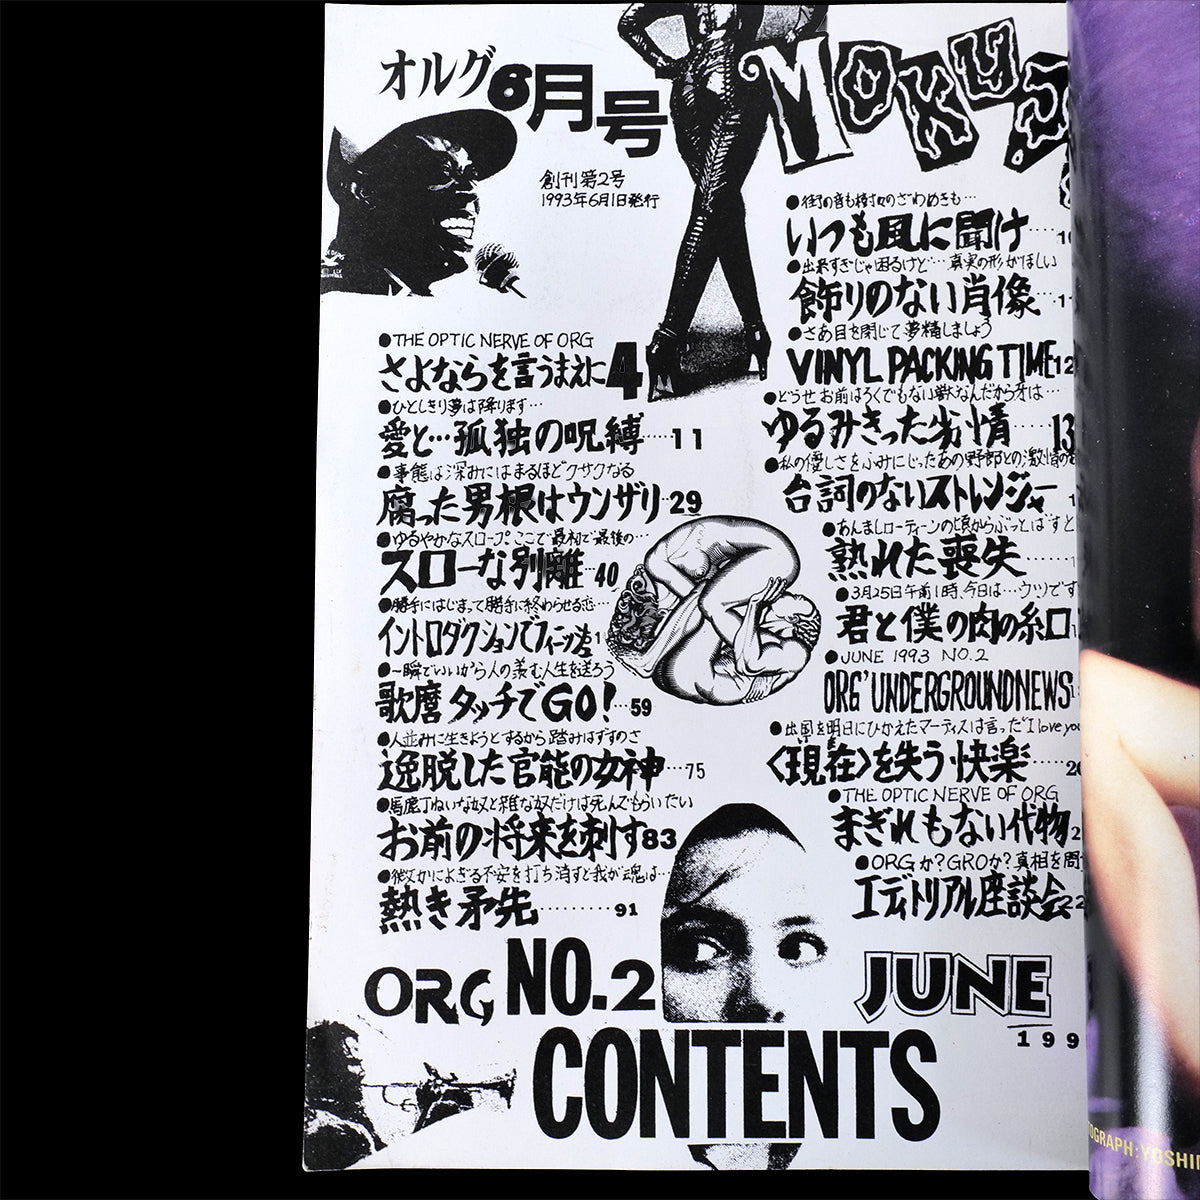 オルグ6月号
MOKUJ
創刊第2号
1993年6月1日発行
●THE OPTIC NERVE OF ORG
さよならを言うまえに4
●ひとしきり夢は降ります…
愛と…孤独の呪縛……11
●事態は深みにはまるほどクサクなる
腐った男根はウンザリ29
●ゆるやかなスロープ。ここで最初で最後の…
スローな別離…40
●勝手にはじまって勝手に終わらせる恋…
イントロダクションでフィニッシュ
●一瞬でいいから人の羨む人生を送ろう
歌麿タッチでGO!…59
●人並みに生きようとするから踏みはずすのさ
逸脱した官能の女神…75
●馬鹿丁ねいな奴と雑な奴だけは死んでもらいたい
お前の将来を刺す83
●微かによぎる不安を打ち消すと我が魂は…
熱き矛先………91
●街の音も樹々のざわめきも…
いつも風に聞け……
●出来すぎじゃ困るけど…真実の形がほしい
飾りのない肖像…
●さあ目を閉じて夢精しましょう
VINYL PACKING TIME12
●どうせお前はろくでもない獣なんだから牙は…
ゆるみきった劣情……13
●私の優しさをふみにじったあの野郎との激情の
台詞のないストレンジャー
●あんましローティーンの頃からぶっとばすと
熟れた喪失……
●3月25日午前1時、今日は…ウツです
君と僕の肉の糸口
●JUNE 1993 NO.2
ORG' UNDERGROUND NEWS
●出国を明日にひかえたマーティスは言った"I love you
〈現在〉を失う快楽……
●THE OPTIC NERVE OF ORG
まぎれもない代物
●ORGか?GROか?真相を問
エディトリアル座談会
ORG NO.2
JUNE
199
CONTENTS
OGRAPH:YOSHI